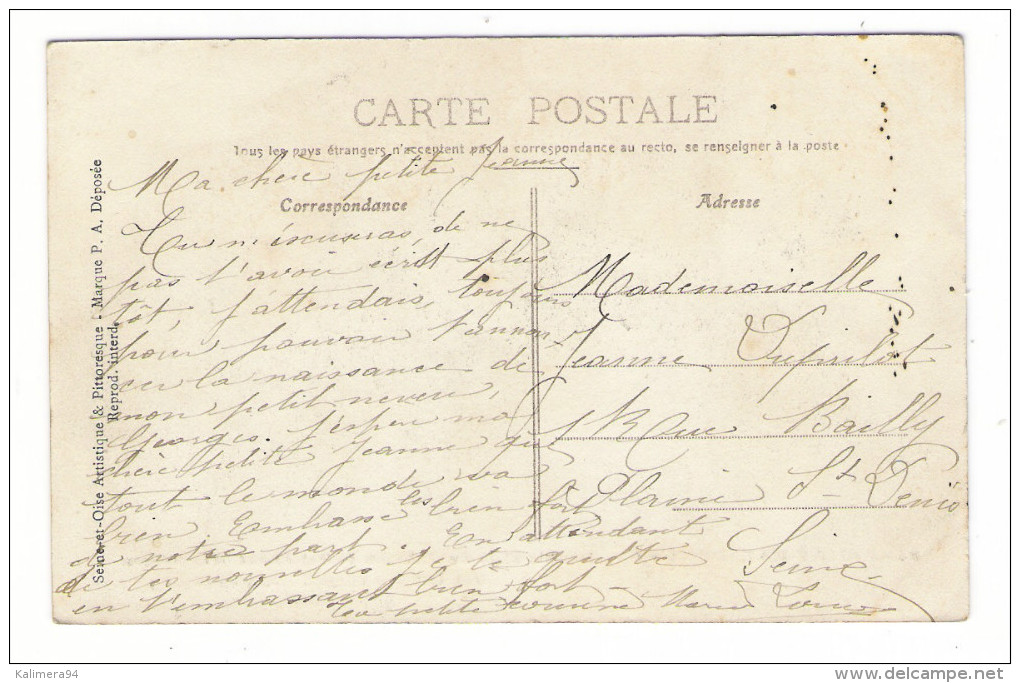 CARTE POSTALE
Tous les pays étrangers n'acceptent pas la correspondance au recto, se renseigner à la poste
Correspondance
Adresse
Ma chère petite Jeanne
Tu m'éxcuseras, de ne
pas t'avoir écrit plus
tôt, j'attendais, toujours
pour pouvoir t'annon-
cer la naissance de
mon petit neveu,
Georges. J'espère ma
chère petite Jeanne que
tout le monde va
bien Embrasse les bien fort
de notre part. En attendant
de tes nouvelles je te quitte
en t'embrassant bien fort
Ta petite cousine Marie Louise
Mademoiselle
Jeanne
1 Rue Bailly
Plaine St Denis
Seine
Seine-et-Oise Artistique & Pittoresque - Marque P. A. Déposée
Reprod. interd.
Kalimera94
http://www.delcampe.net